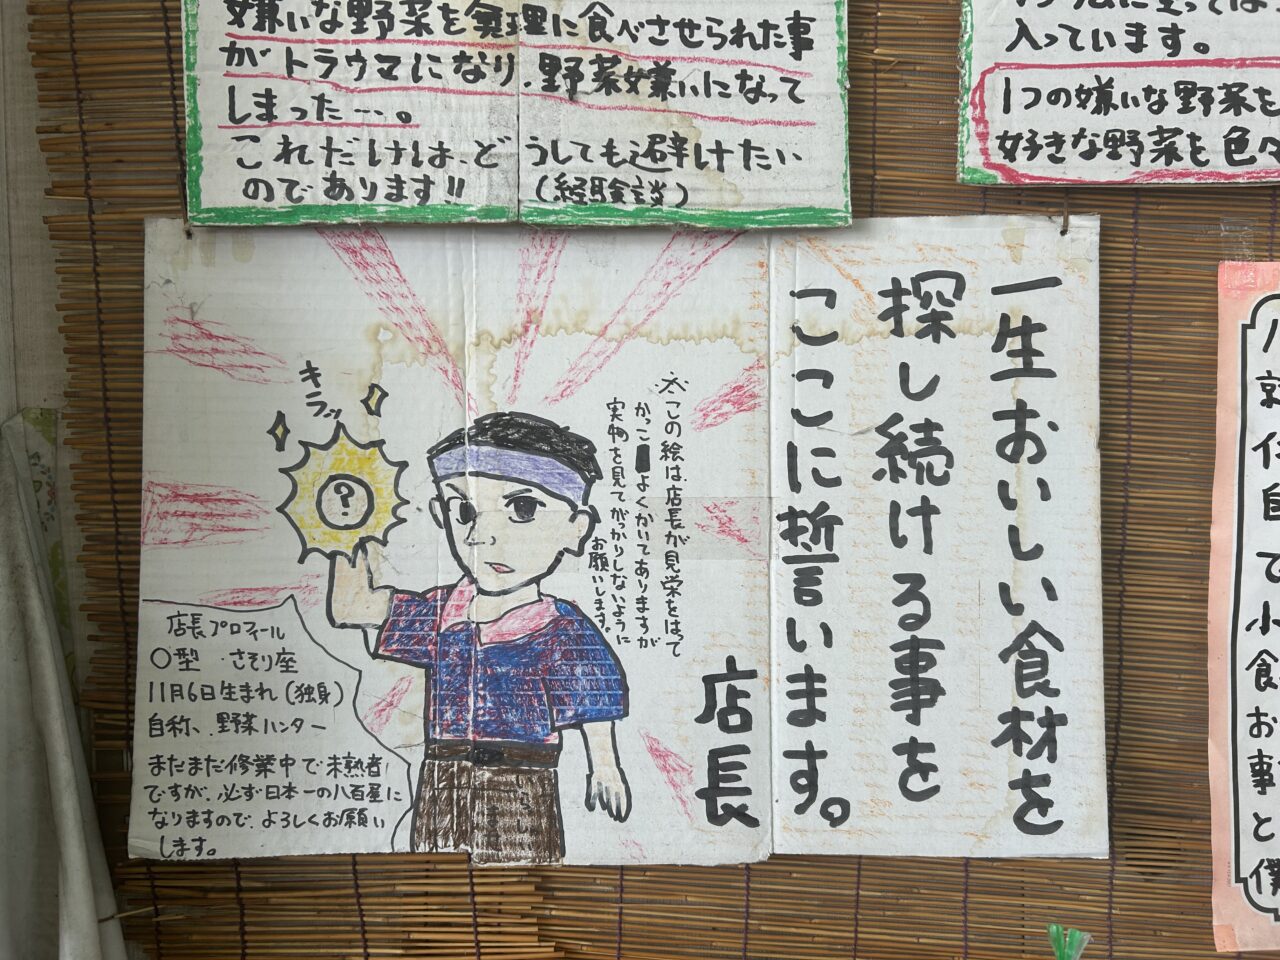 嫌いな野菜を無理に食べさせられた事
がトラウマになり、野菜嫌いになって
しまった…。
これだけは、どうしても避けたい
のであります!!
(経験談)
入っています。
1つの嫌いな野菜を
好きな野菜を色々
一生おいしい食材を
探し続ける事を
ここに誓います。
店長
キラッ
?
※この絵は、店長が見栄をはって
かっこよくかいてありますが
実物を見てがっかりしないように
お願いします。
店長プロフィール
O型 さそり座
11月6日生まれ(独身)
自称、野菜ハンター
まだまだ修業中で未熟者
ですが、必ず日本一の八百屋に
なりますので、よろしくお願い
します。